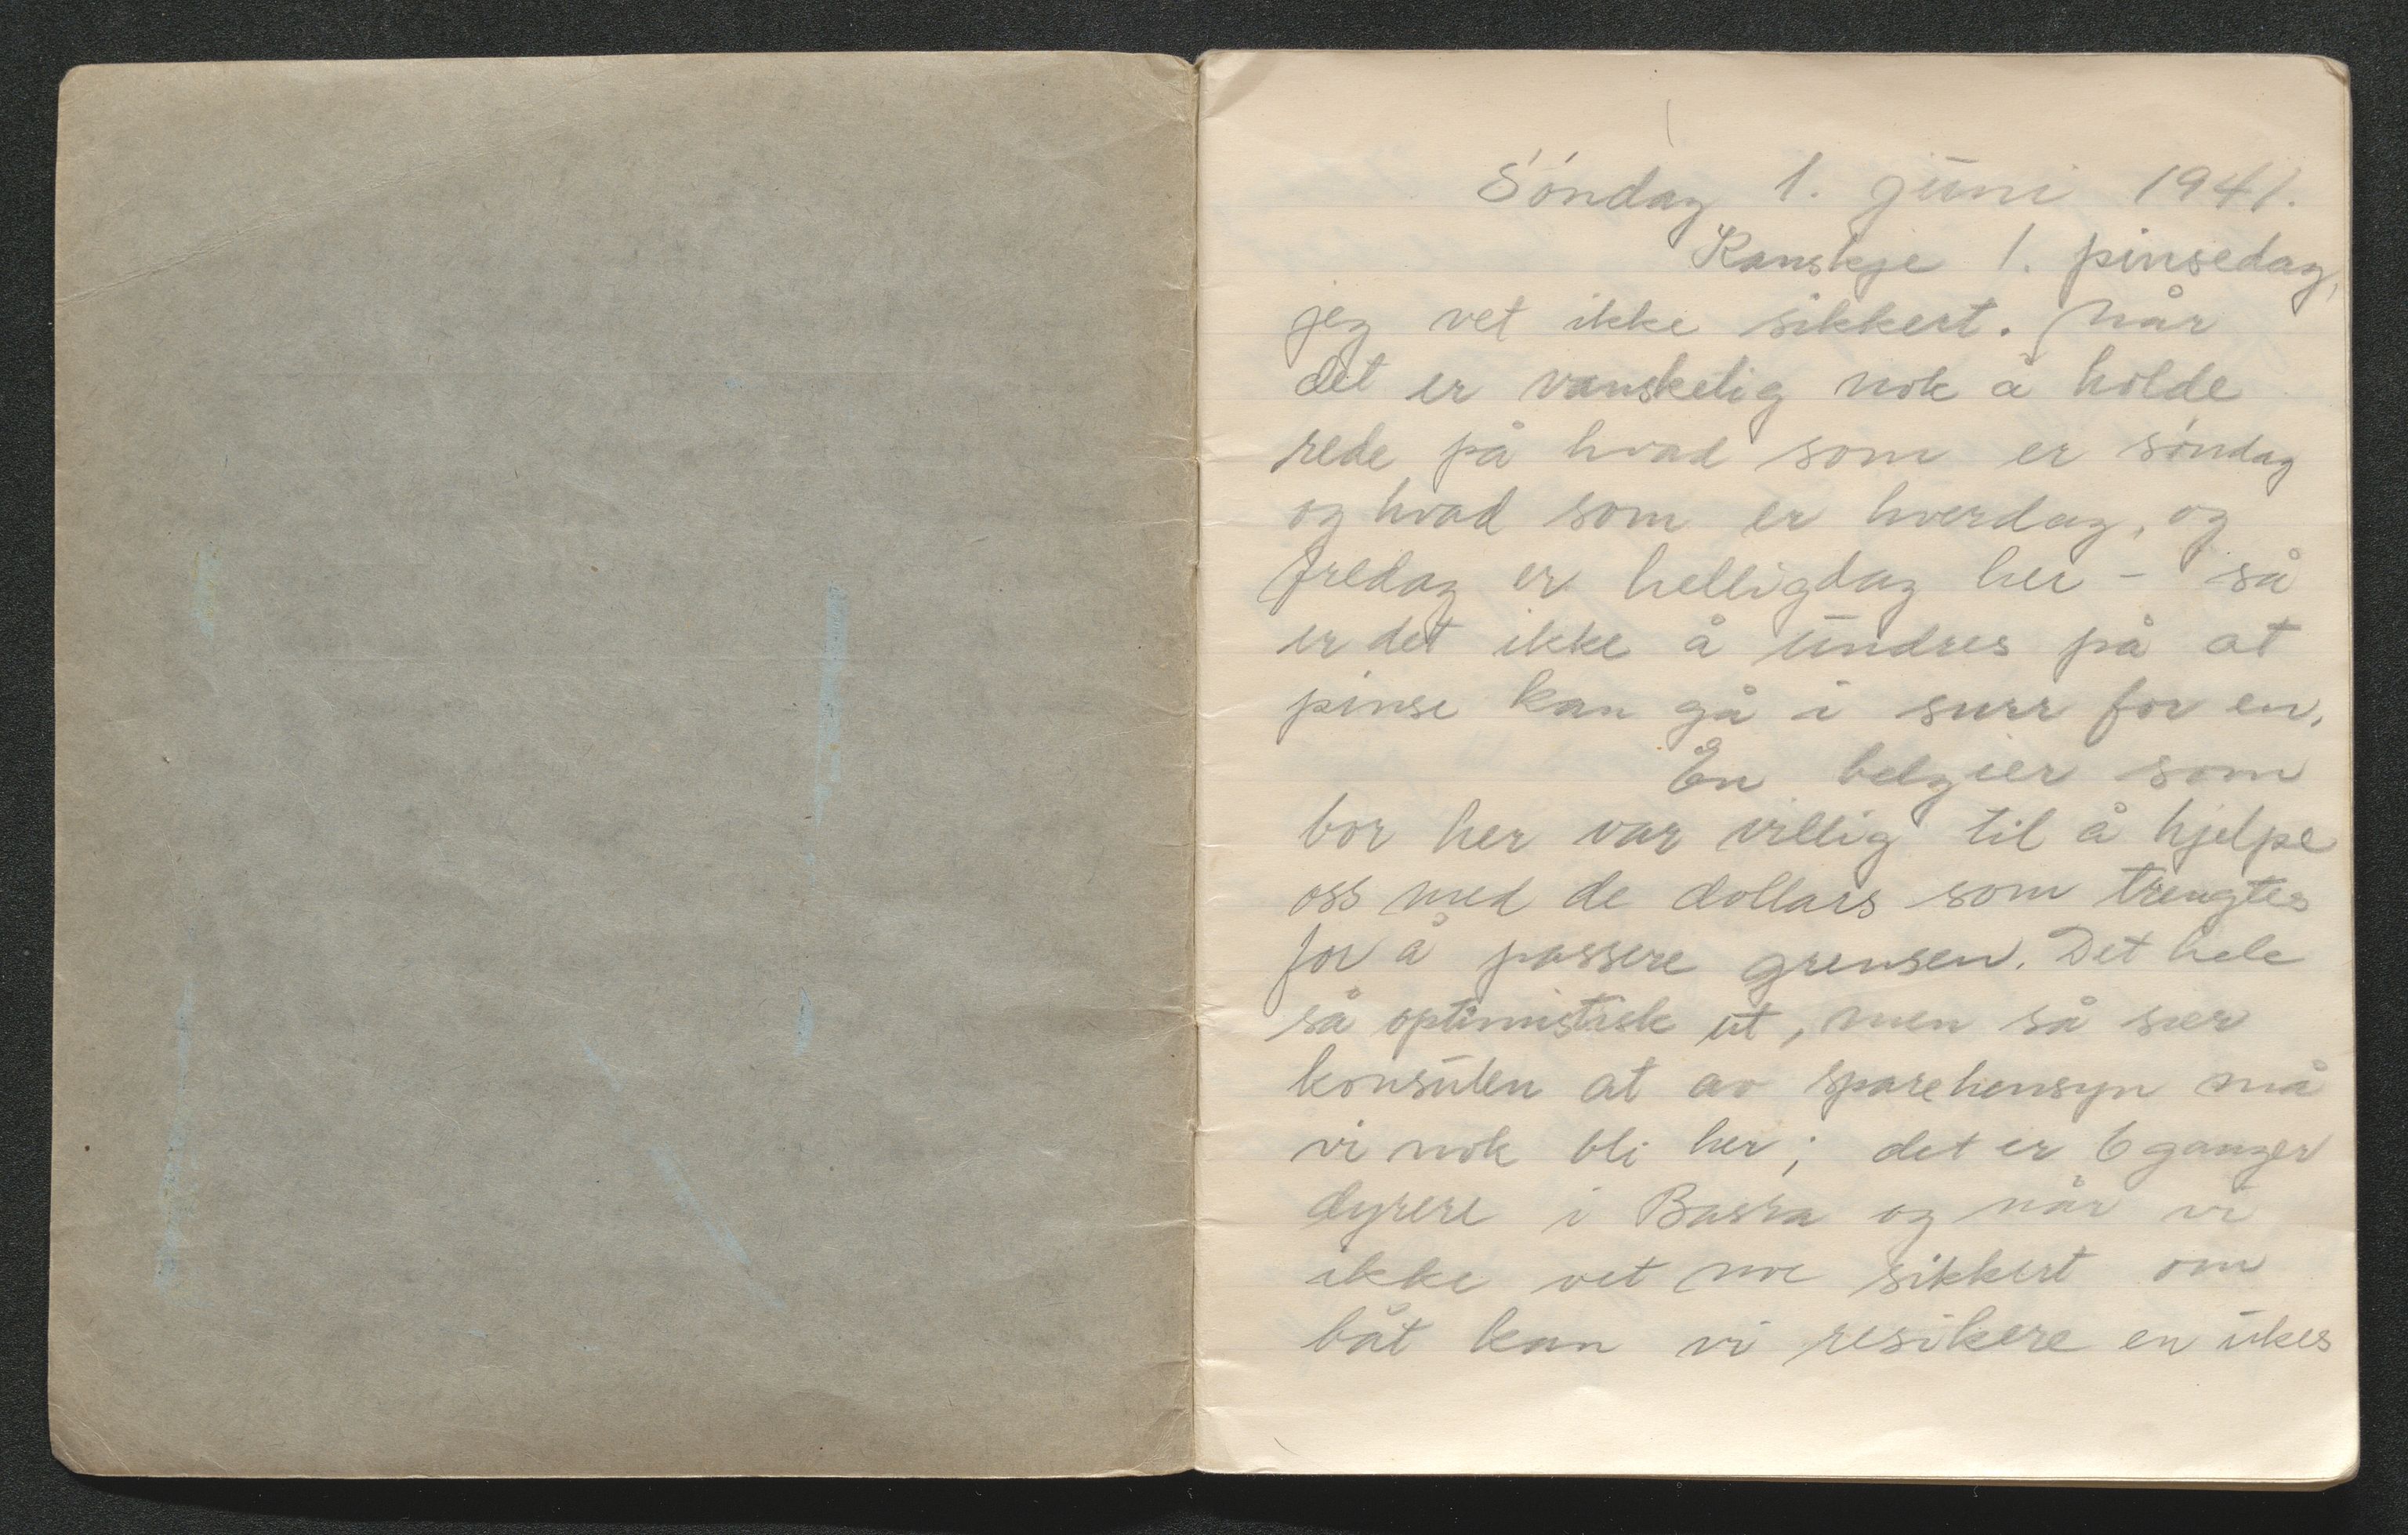 Søndag 1. juni 1941.
Kanskje 1. pinsedag,
jeg vet ikke sikkert. Når
det er vanskelig nok å holde
rede på hvad som er søndag
og hvad som er hverdag, og
fredag er helligdag her - så
er det ikke å undres på at
pinse kan gå i surr for en.
En belgier som
bor her var villig til å hjelpe
oss med de dollars som trengtes
for å passere grensen. Det hele
så optimistisk ut, men så sier
konsulen at av sparehensyn må
vi nok bli her; det er 6 ganger
dyrere i Basra og når vi
ikke vet noe sikkert om
båt kan vi resikere en ukes